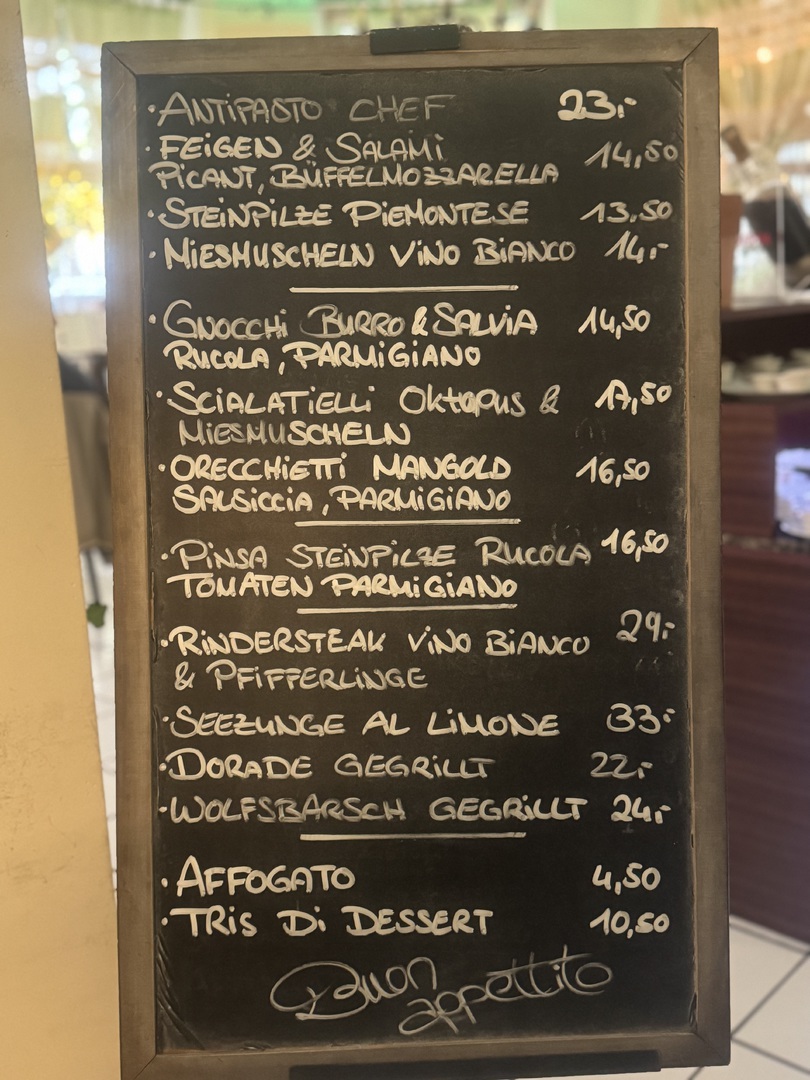 · ANTIPASTO CHEF 23,-
· FEIGEN & SALAMI 14,50
PICANT, BÜFFELMOZZARELLA
· STEINPILZE PIEMONTESE 13,50
· MIESMUSCHELN VINO BIANCO 14,-
· GNOCCHI BURRO & SALVIA 14,50
RUCOLA, PARMIGIANO
· SCIALATIELLI Oktopus & 17,50
MIESMUSCHELN
· ORECCHIETTI MANGOLD 16,50
SALSICCIA, PARMIGIANO
· PINSA STEINPILZE RUCOLA 16,50
TOMATEN PARMIGIANO
· RINDERSTEAK VINO BIANCO 29,-
& PFIFFERLINGE
· SEEZUNGE AL LIMONE 33,-
· DORADE GEGRILLT 22,-
· WOLFSBARSCH GEGRILLT 24,-
· AFFOGATO 4,50
· TRIS DI DESSERT 10,50
Buon
appettito